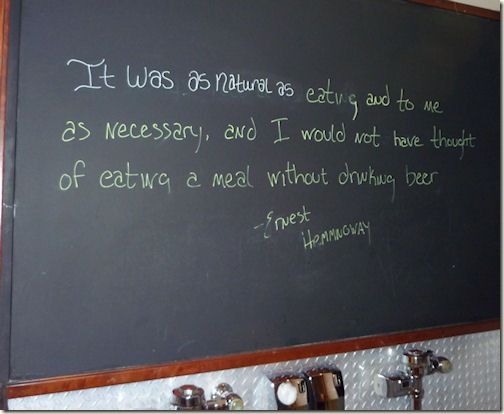 It was as natural as eating and to me
as necessary, and I would not have thought
of eating a meal without drinking beer
-Ernest
HEMMNGWAY